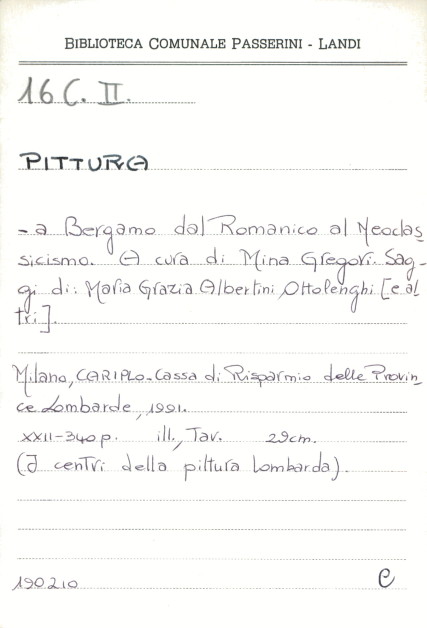 BIBLIOTECA COMUNALE PASSERINI - LANDI
16 C. II.
PITTURA
- a Bergamo dal Romanico al Neoclas
sicismo. A cura di Mina Gregori. Sag-
gi di: Maria Grazia Albertini Ottolenghi [e al
tri].
Milano, CARIPLO-Cassa di Risparmio delle Provin
ce Lombarde, 1991.
XXII-340 p. ill., Tav. 29cm.
(I centri della pittura lombarda).
190210 C